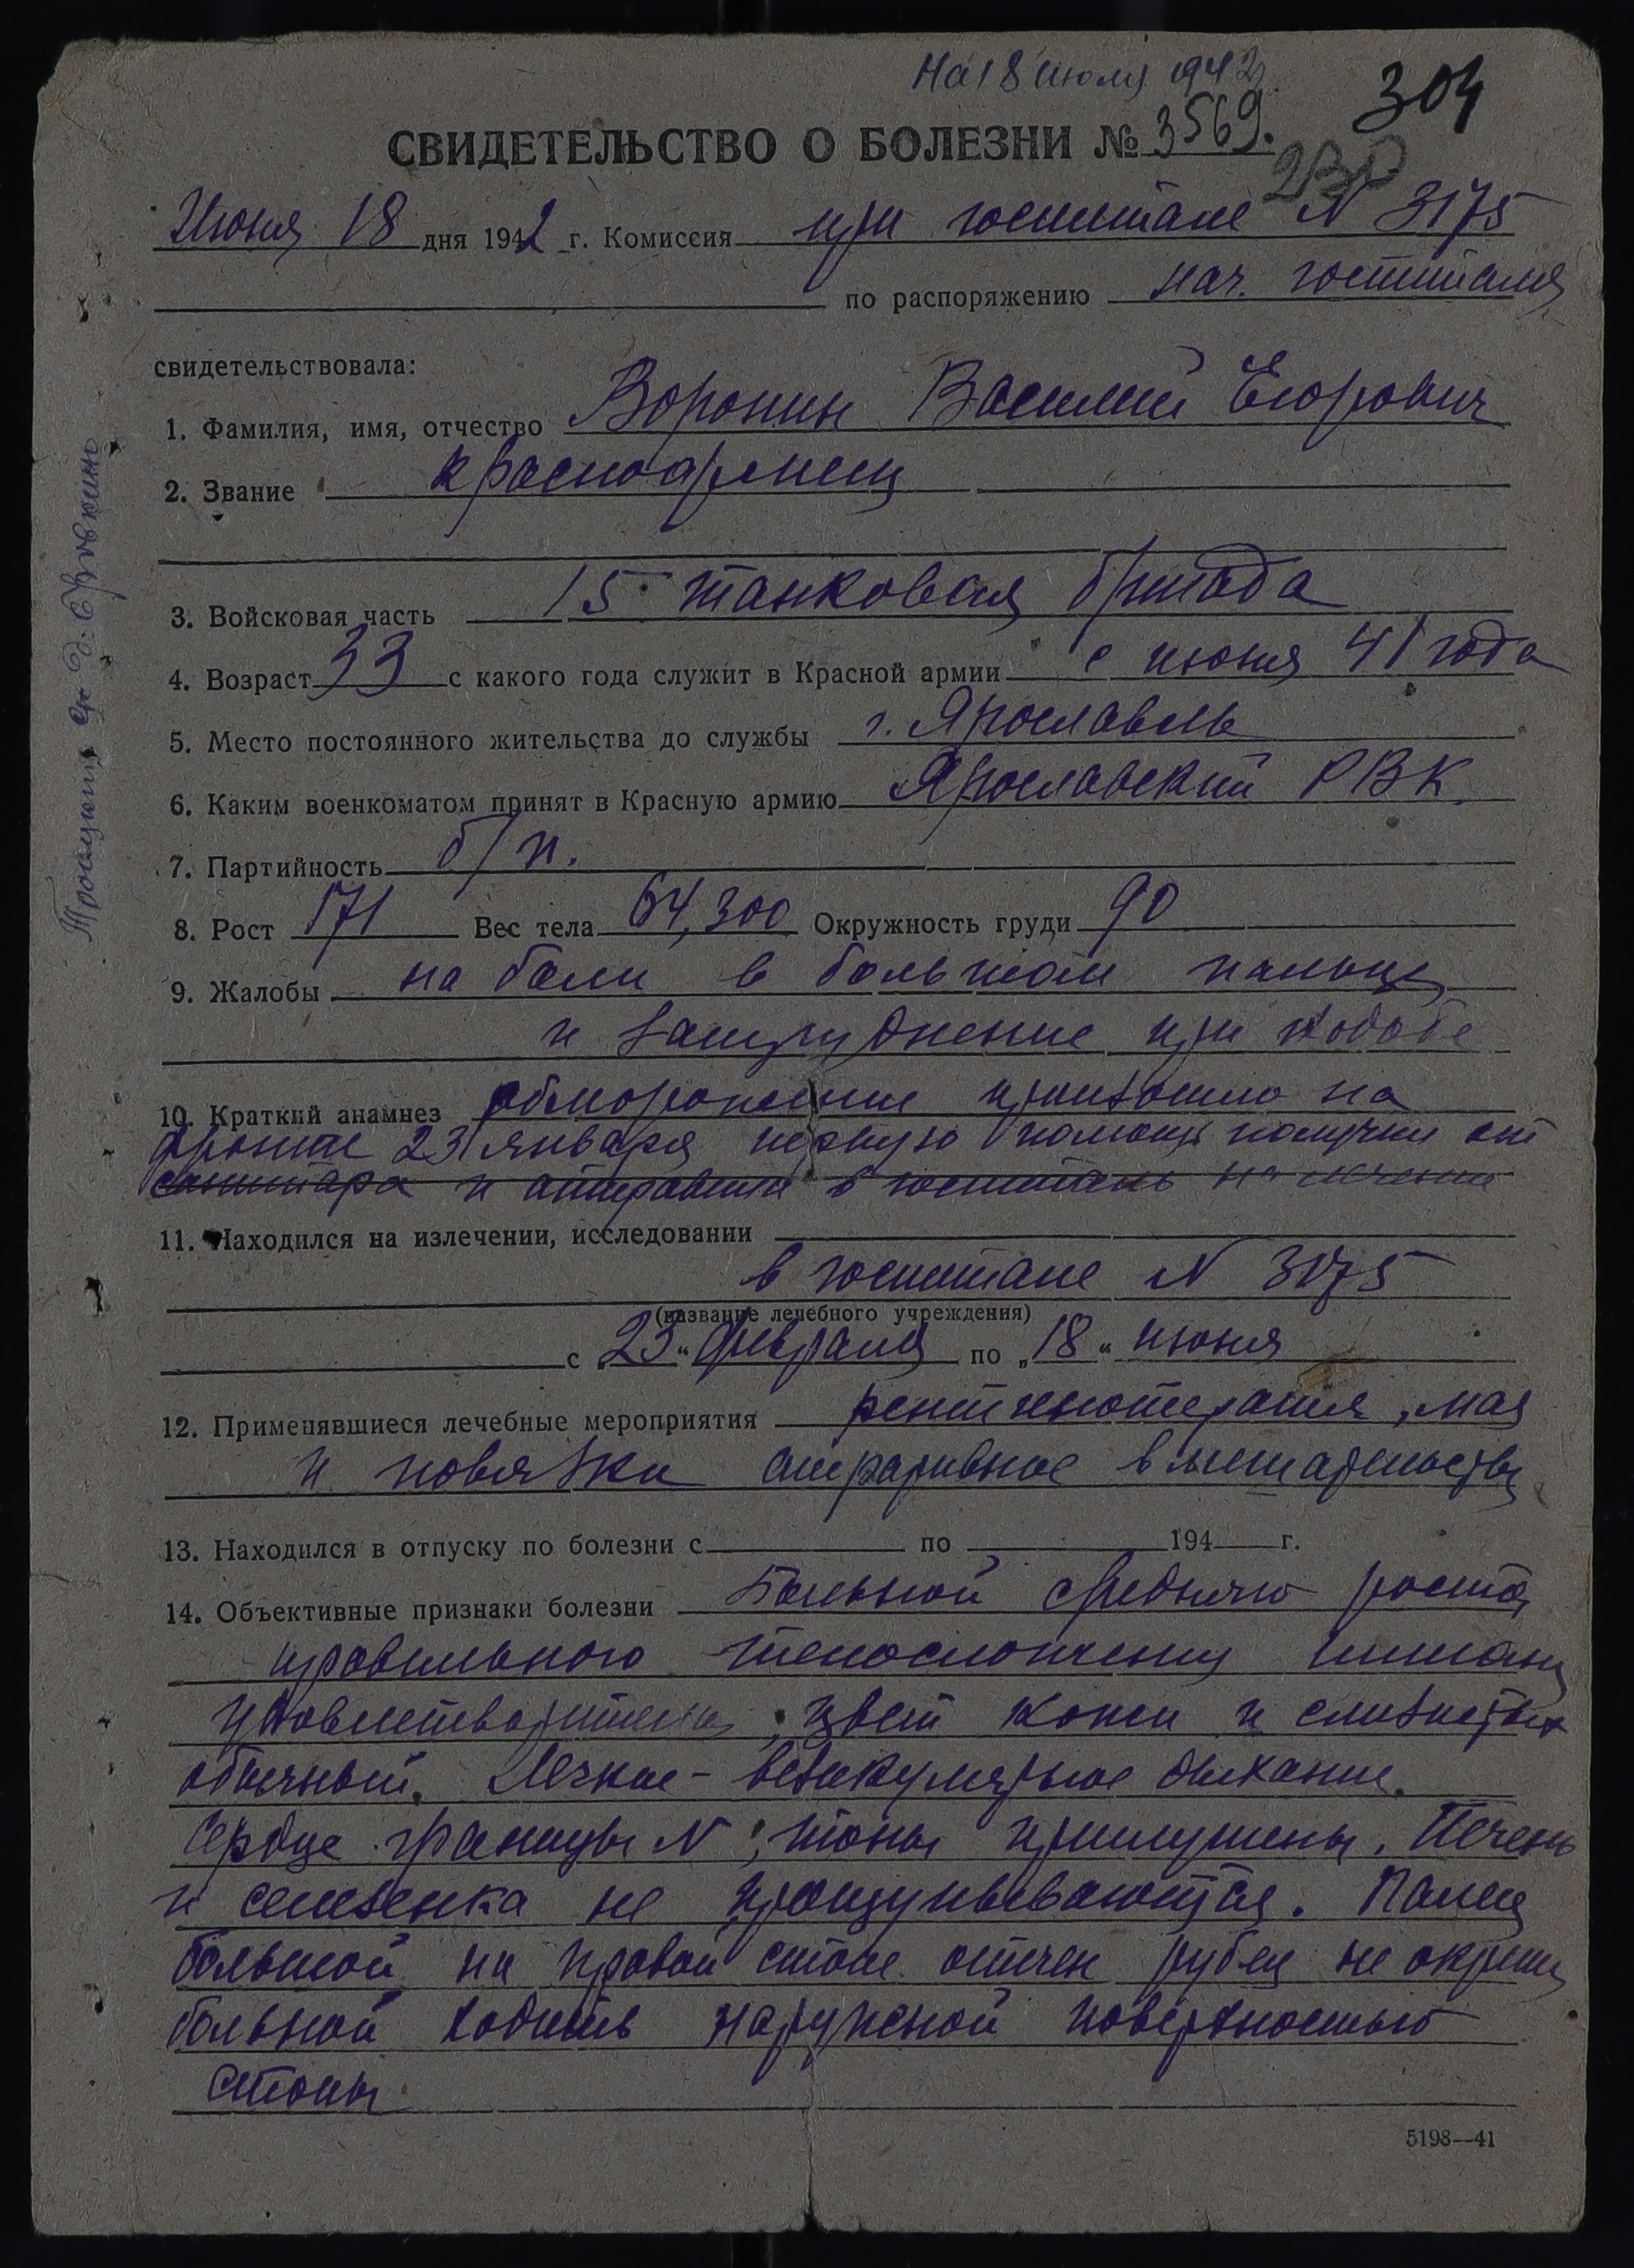 На 18 июля 1942
304
СВИДЕТЕЛЬСТВО О БОЛЕЗНИ № 3569.
Июня 18 дня 1942 г. Комиссия при госпитале N 3175
по распоряжению нач. госпиталя
свидетельствовала:
1. Фамилия, имя, отчество Воронин Василий Егорович
2. Звание красноармеец
3. Войсковая часть 15 танковая бригада
4. Возраст 33 с какого года служит в Красной армии с июня 41 года
5. Место постоянного жительства до службы г. Ярославль
6. Каким военкоматом принят в Красную армию Ярославский РВК.
7. Партийность б/п.
8. Рост 171 Вес тела 64,300 Окружность груди 90
9. Жалобы на боли в большом пальце
и затруднение при ходьбе
10. Краткий анамнез обморожение произошло на
фронте 23 января первую помощь получил от
санитара и отправлен в госпиталь на лечение
11. Находился на излечении, исследовании
в госпитале N 3175
(название лечебного учреждения)
с 23 " февраля по „ 18 " июня
12. Применявшиеся лечебные мероприятия рентгенотерапия, маз
и повязки оперативное вмешательство
13. Находился в отпуску по болезни с по 194 г.
14. Объективные признаки болезни Больной среднего роста,
правильного телосложения питания
удовлетворительн цвет кожи и слизистых
обычный. Легкие - везикулярное дыхание.
Сердце границы N; тоны приглушены. Печень
и селезенка не прощупываются. Палец
большой на правой стопе отечен рубец не окреп
больной ходить наружной поверхностью
стопы
5198—41